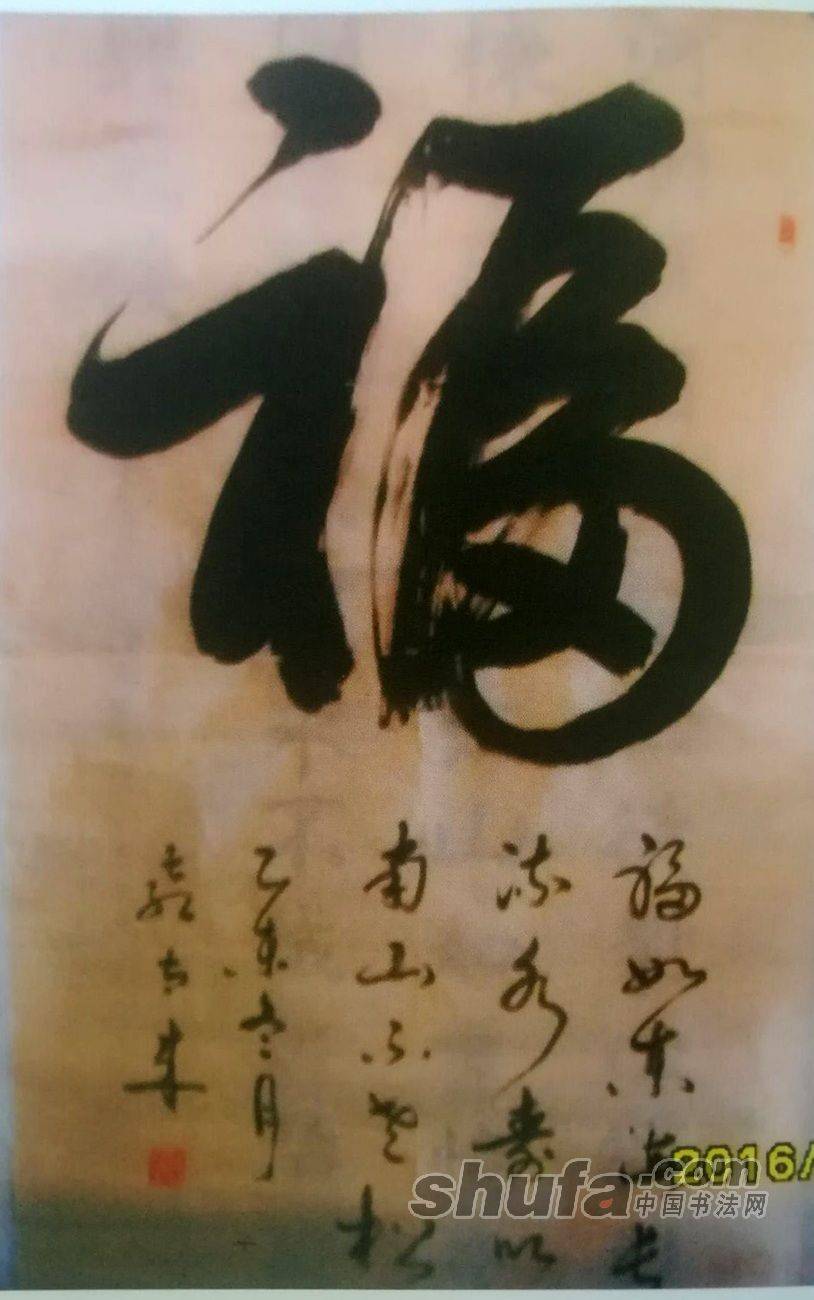 福
福如东海长
流水寿比
南山不老松
乙未六月
2016/
shufa.com
中国书法网